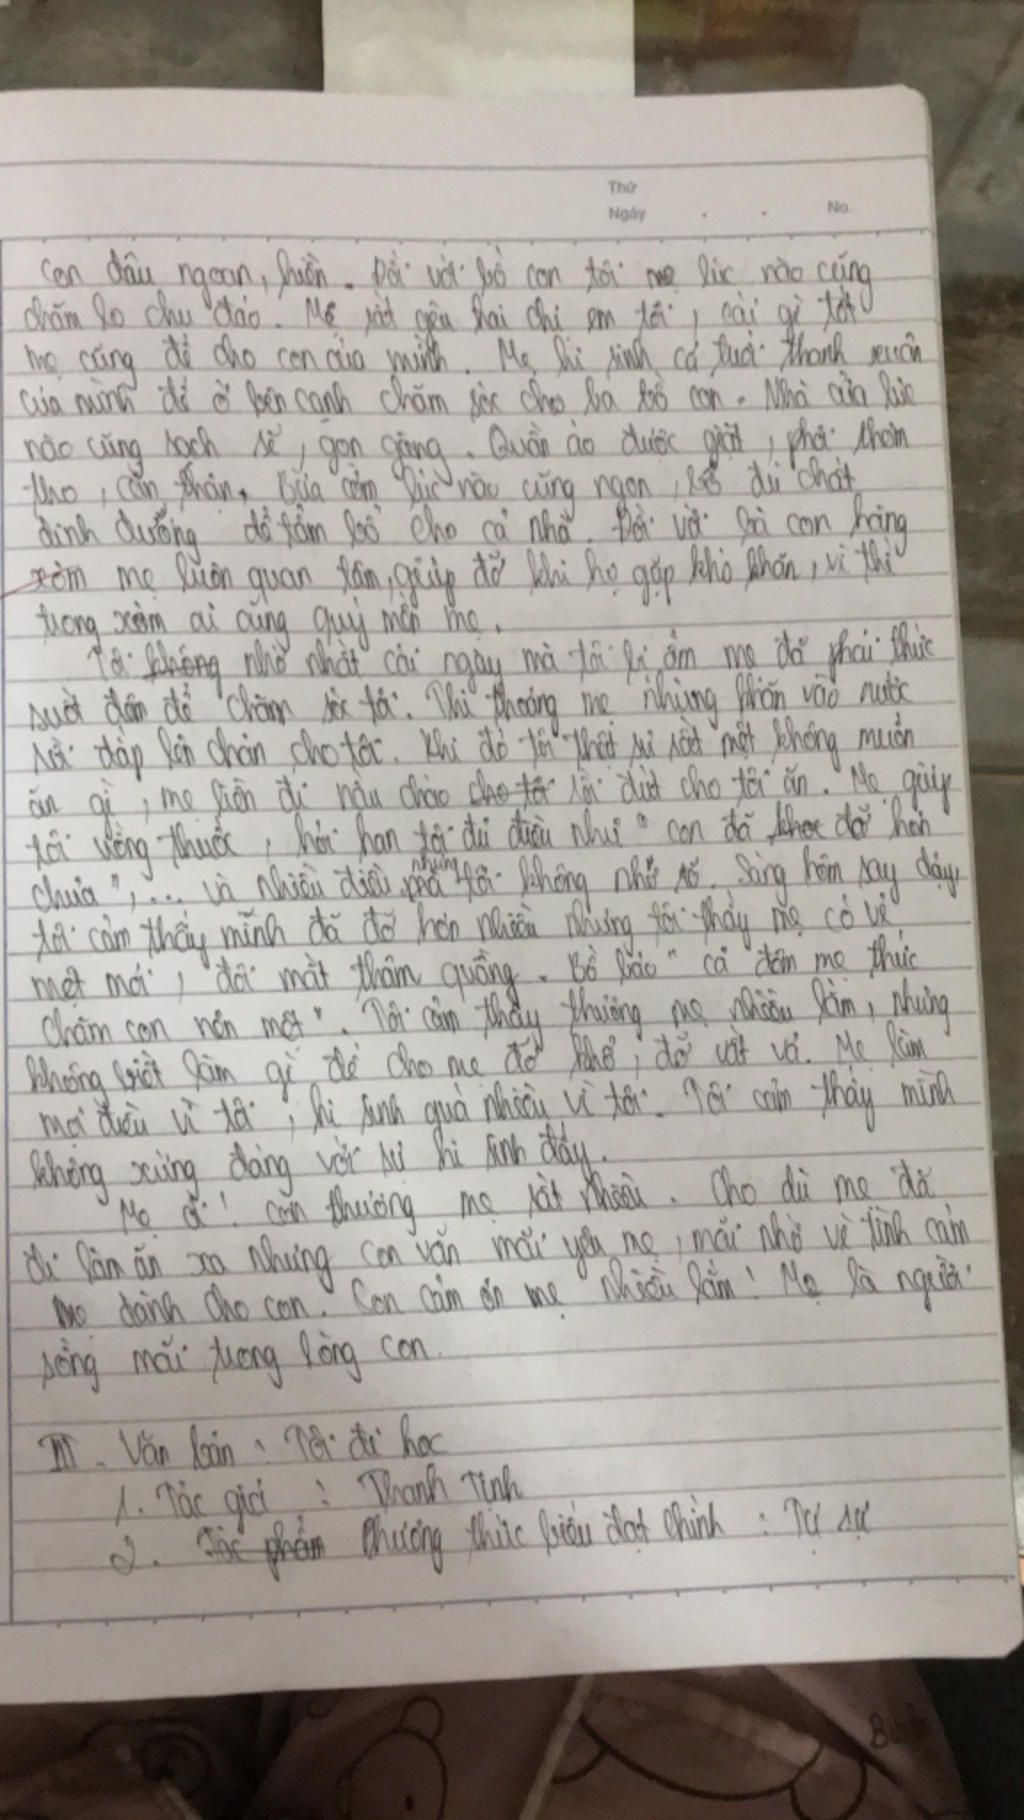 Thứ
Ngày . . No.
con dâu ngoan, hiền. Đối với bố con tôi mẹ lúc nào cũng
chăm lo chu đáo. Mẹ rất yêu hai chị em tôi, cái gì tốt
mẹ cũng để cho con của mình. Mẹ hi sinh cả tuổi thanh xuân
của mình để ở bên cạnh chăm sóc cho ba bố con. Nhà cửa lúc
nào cũng sạch sẽ, gọn gàng. Quần áo được giặt, phơi thơm
tho, cẩn thận. Bữa cơm lúc nào cũng ngon, đủ chất
dinh dưỡng để tẩm bổ cho cả nhà. Đối với bà con hàng
xóm mẹ luôn quan tâm, giúp đỡ khi họ gặp khó khăn, vì thế
trong xóm ai cũng quý mến mẹ.
Tôi không nhớ nhất cái ngày mà tôi bị ốm mẹ đã phải thức
suốt đêm để chăm sóc tôi. Thi thoảng mẹ nhúng khăn vào nước
rồi đắp lên chán cho tôi. Khi đó tôi thật sự rất mệt không muốn
ăn gì, mẹ liền đi nấu cháo cho tôi rồi đút cho tôi ăn. Mẹ giúp
tôi uống thuốc, hỏi han tôi đủ điều như " con đã khoẻ đỡ hơn
chưa",... và nhiều điều mà nhưng tôi không nhớ rõ. Sáng hôm say dậy,
tôi cảm thấy mình đã đỡ hơn nhiều nhưng tôi thấy mẹ có vẻ
mệt mỏi, đôi mắt thâm quầng. Bố bảo " cả đêm mẹ thức
chăm con nên mệt". Tôi cảm thấy thương mẹ nhiều lắm, nhưng
không biết làm gì để cho mẹ đỡ khổ, đỡ vất vả. Mẹ làm
mọi điều vì tôi, hi sinh quá nhiều vì tôi. Tôi cảm thấy mình
không xứng đáng với sự hi sinh đấy.
Mẹ ơi! con thương mẹ rất nhiều. Cho dù mẹ đã
đi làm ăn xa nhưng con vẫn mãi yêu mẹ, mãi nhớ về tình cảm
mẹ dành cho con. Con cảm ơn mẹ nhiều lắm! Mẹ là người
sống mãi trong lòng con.
III. Văn bản : Tôi đi học
1. Tác giả : Thanh Tịnh
2. Tác phẩm Phương thức biểu đạt chính : Tự sự